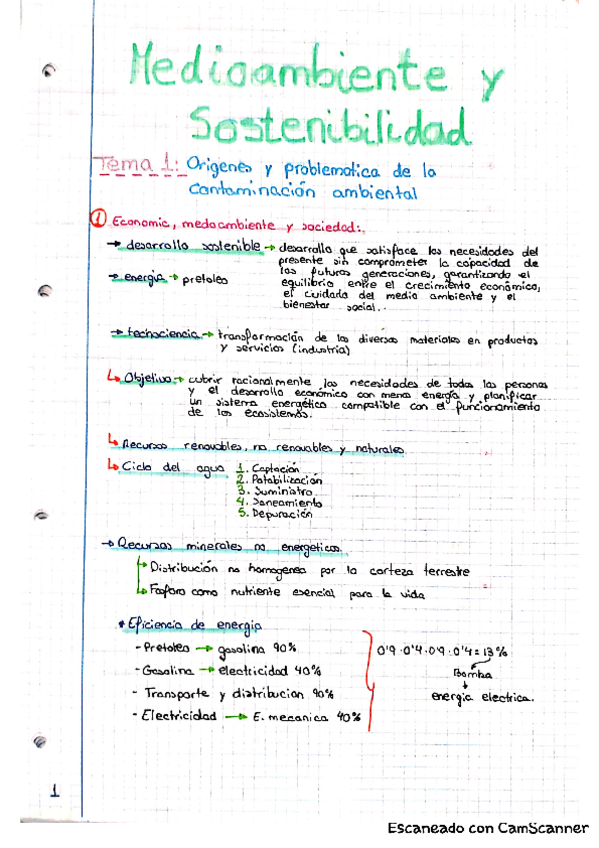 Medioambiente y
Sostenibilidad
Tema 1: Origenes y problematica de la
contaminación ambiental
1 Economia, medoambiente y sociedad:.
→ desarrollo sostenible → desarrollo que satisface las necesidades del
presente sin comprometer la capacidad de
las futuras generaciones, garantizando el
equilibrio entre el crecimiento económico,
el cuidado del medio ambiente y el
bienestar social..
→ energia → pretoleo
→ tecnociencia → transformación de los diversos materiales en productos
y servicios (industria)
↳ Objetivo → cubrir racionalmente las necesidades de todas las personas
y el desarrollo económico con menos energía y planificar
un sistema energético compatible con el funcionamiento
de los ecosistemas.
↳ Recursos renovables, no renovables y naturales
↳ Ciclo del agua 1. Captación
2. Potabilización
3. Suministro
4. Saneamiento
5. Depuración
→ Recursos minerales no energeticos.
↳ Distribución no homogenea por la corteza terrestre
↳ Fosforo como nutriente esencial para la vida
* Eficiencia de energia
- Pretoleo → gasolina 90%
- Gasolina → electricidad 40%
- Transporte y distribucion 90%
- Electricidad → E. mecanica 40%
0'9 · 0'4 · 0'9 · 0'4 = 13%
Bomba
↓
energia electrica.
1
Escaneado con CamScanner